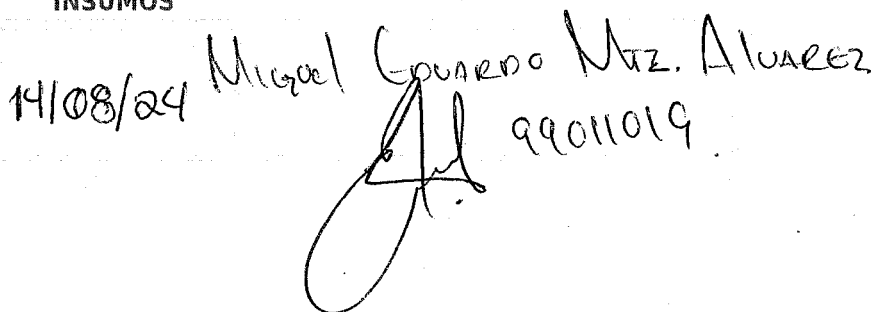 INSUMOS
14/08/24 Miguel Eduardo Mtz. Alvarez
99011019.